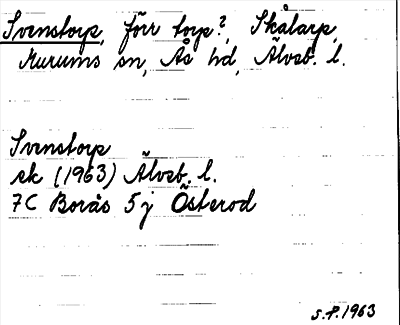 Svenstorp, förr torp?, Skålarp,
Murums sn, Ås hd, Älvsb. l.
Svenstorp
ek (1963) Älvsb. l.
7C Borås 5 j Österod
S.P. 1963